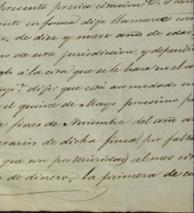 presente previa citacion D.
en forma dijo llamarse
de diez y nueve años de edad
de esta jurisdiccion, y dependi
a la cita que se le hace en el au
dijo: que con acomodado en
el quince de Mayo procsimo
a fines de Noviembre del año
de dicha finca; por fal
que con posterioridad al mes
de dinero; la primera de